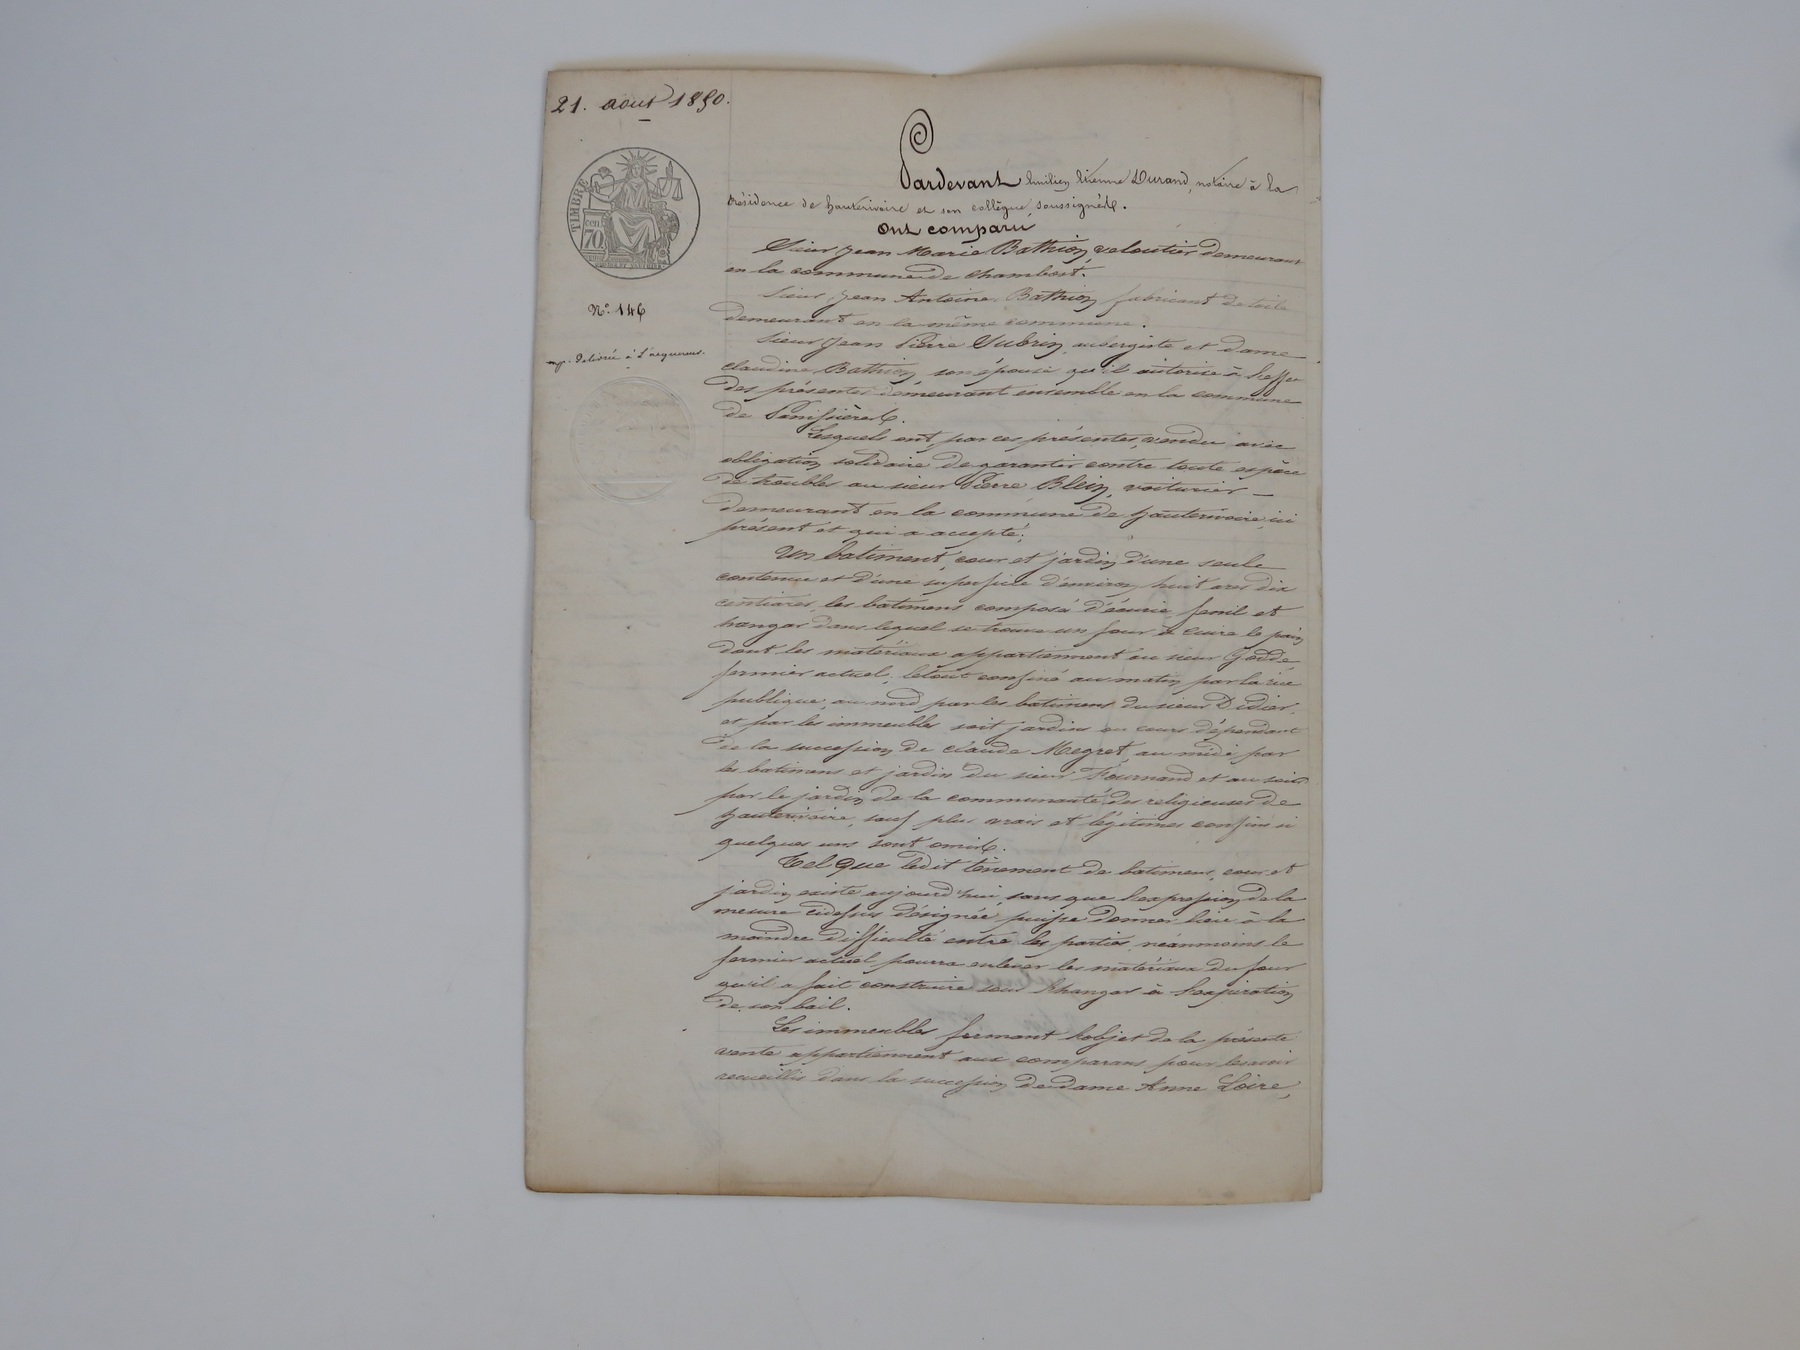 21. aout 1850.
TIMBRE
cen
70
No. 146
Delivrée à l'acquereur.
Pardevant Emilien Etienne Durand, notaire à la
résidence de hauterivoire et son collègue, soussignés.
Ont comparu
Sieur Jean Marie Bathion, veloutier demeurant
en la commune de Chambost.
Sieur Jean Antoine Bathion fabricant de toile
demeurant en la même commune.
Sieur Jean Pierre Subrin, aubergiste et dame
Claudine Bathion son épouse qu'il autorise à l'effet
des présentes demeurant ensemble en la commune
de Panissières.
Lesquels ont, par ces présentes, vendu avec
obligation solidaire de garantir contre toute espèce
de troubles au sieur Pierre Blein, voiturier
demeurant en la commune de hauterivoire, ici
présent et qui a accepté;
Un batiment, cour et jardin d'une seule
contenue et d'une superficie d'environ huit ares dix
centiares, les batimens composé d'écurie, fenil et
hangar dans lequel se trouve un four à cuire le pain
dont les matériaux appartiennent au sieur
fermier actuel; le tout confiné au matin par la rue
publique, au nord par les batimens du sieur Didier,
et par les immeubles soit jardins ou cours dépendant
de la succession de Claude Megret, au midi par
les batimens et jardin du sieur Fournand et au soir
par le jardin de la communauté des religieuses de
hauterivoire, sauf plus vrais et légitimes confins si
quelques uns sont omis.
Tel que ledit tènement de batimens, cour et
jardin existe aujourd'hui, sans que l'expression de la
mesure cidessus désignée, puisse donner lieu à la
moindre difficulté entre les parties, néanmoins le
fermier actuel pourra enlever les matériaux du four
qu'il a fait construire sous l'hangar à l'expiration
de son bail.
Les immeubles formant l'objet de la présente
vente appartiennent aux comparans pour les avoir
recueillis dans la succession de dame Anne Loire,